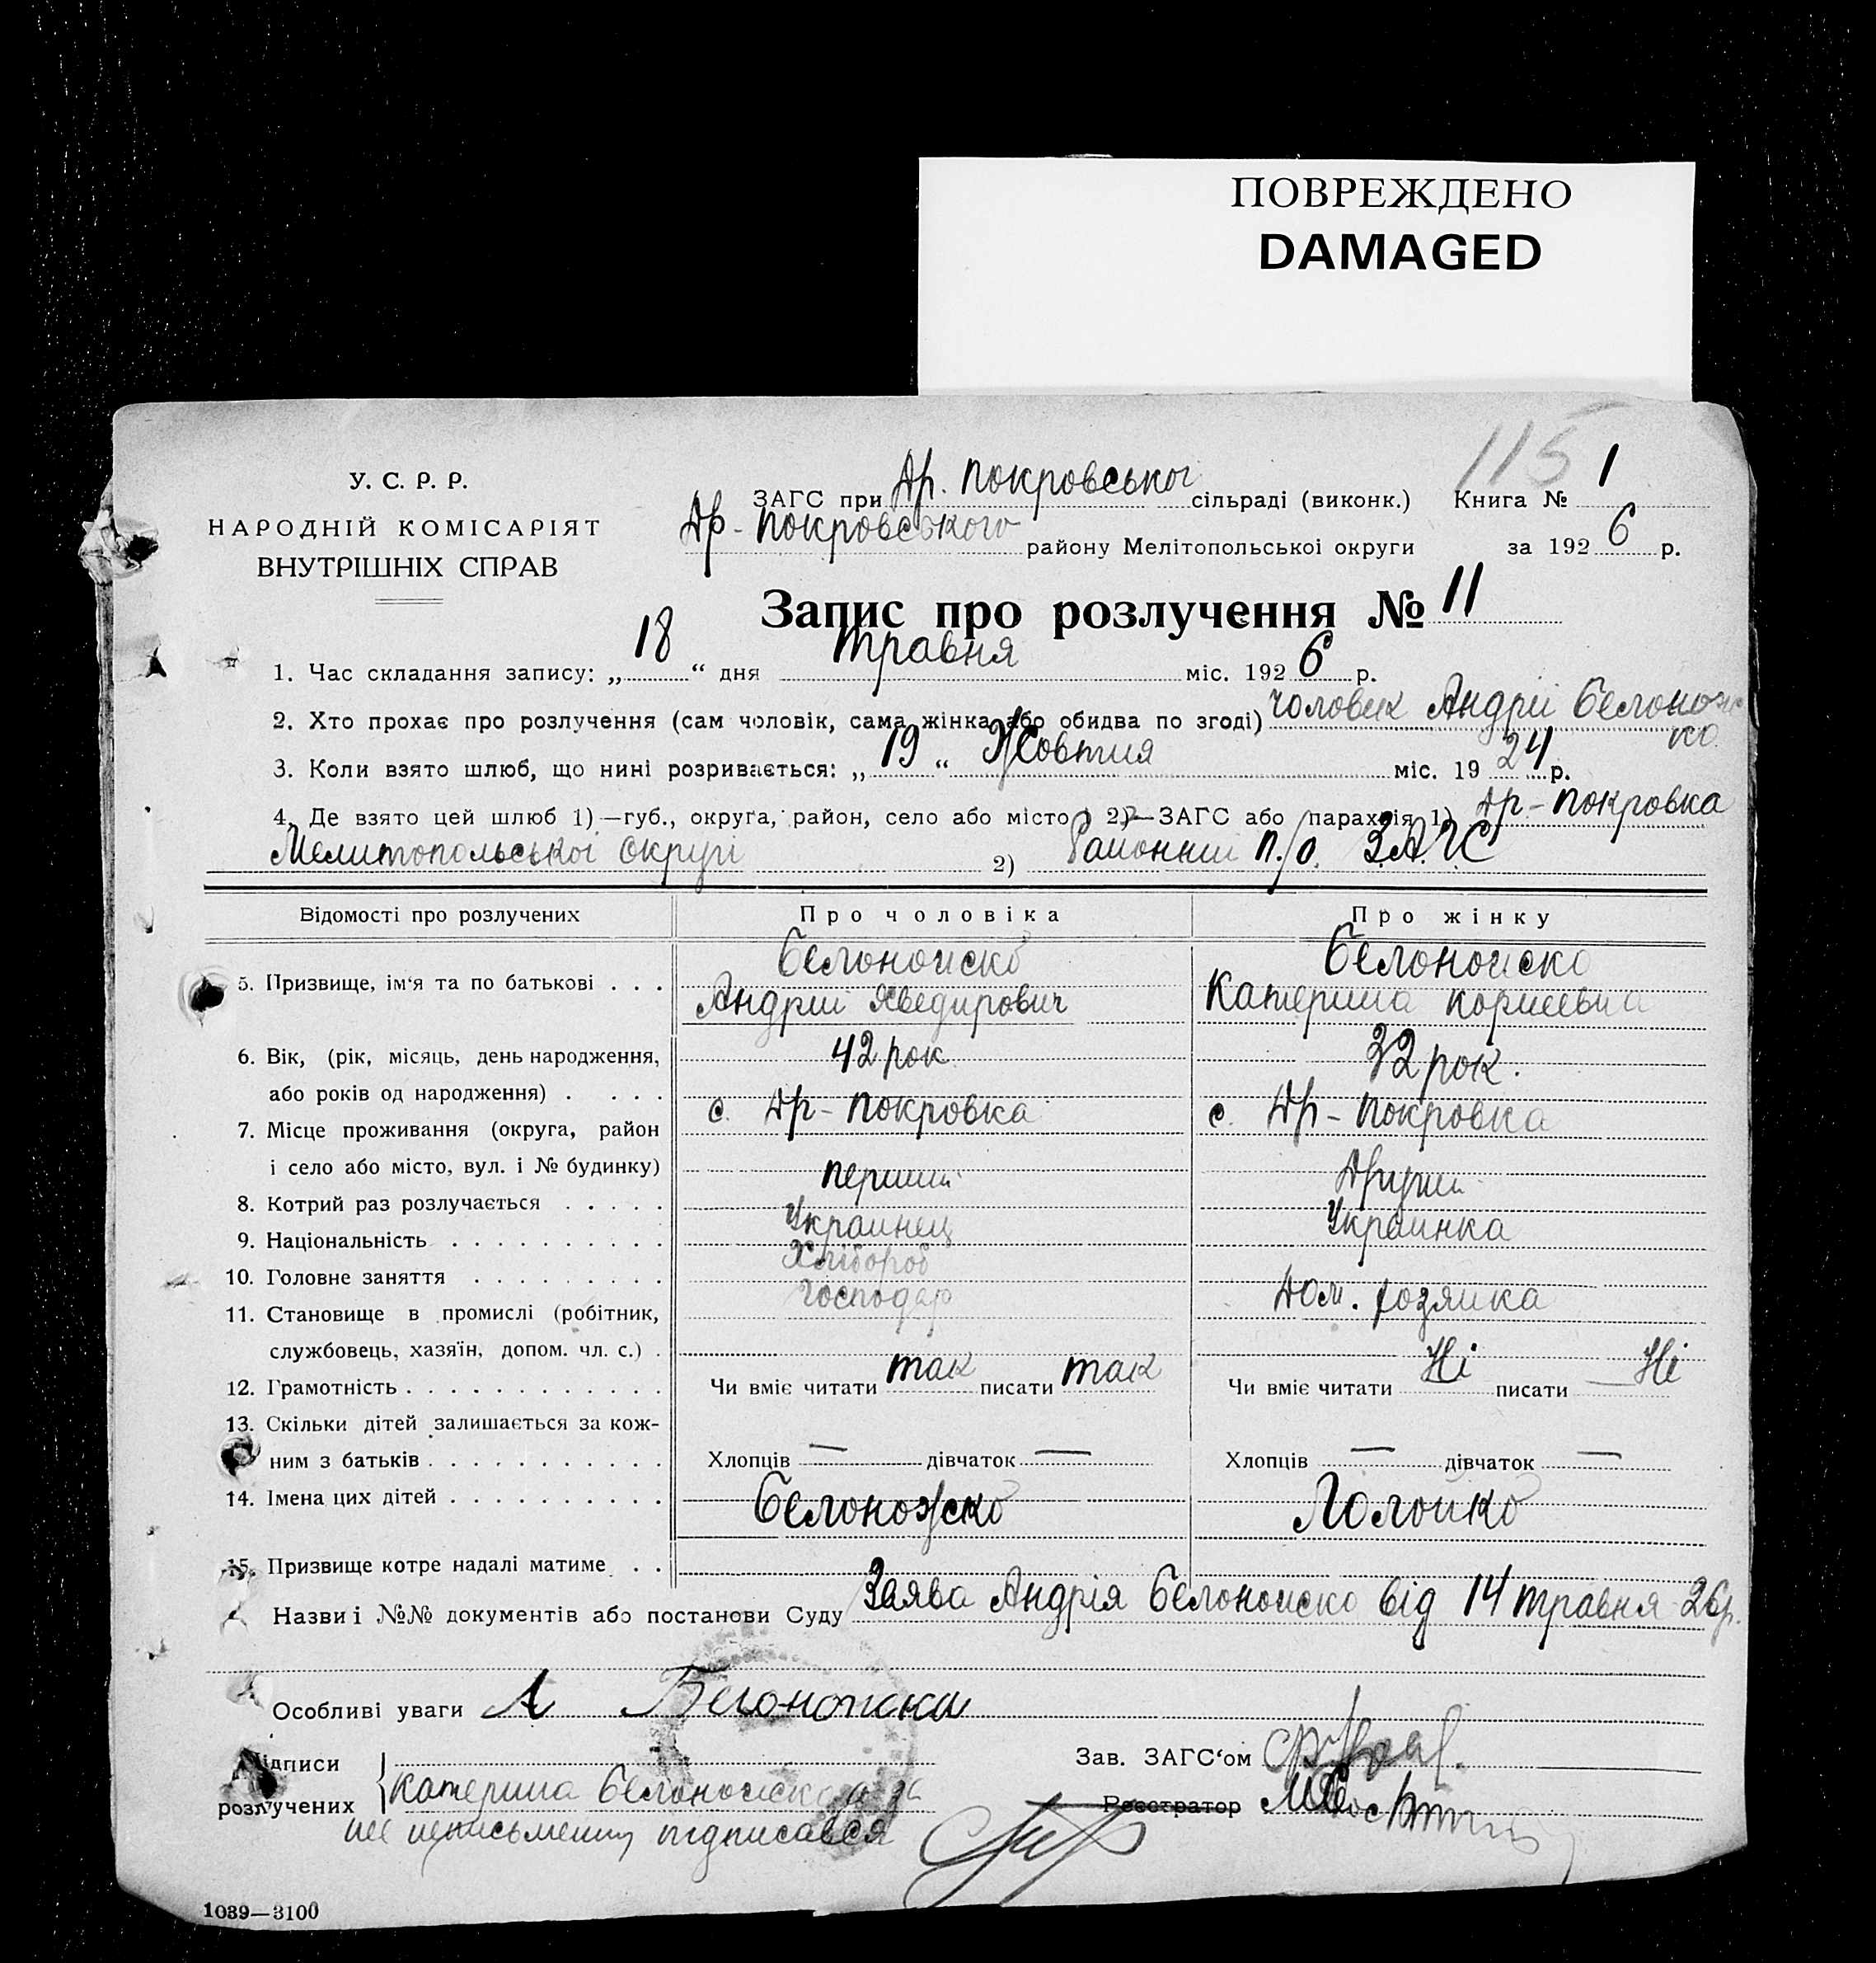 ПОВРЕЖДЕНО
DAMAGED
115
У. С. Р. Р.
НАРОДНІЙ КОМІСАРІЯТ
ВНУТРІШНІХ СПРАВ
ЗАГС при Др. Покровської сільраді (виконк.) Книга № 1
Др-Покровського району Мелітопольської округи за 1926 р.
Запис про розлучення № 11
1. Час складання запису: „18“ дня травня міс. 1926 р.
2. Хто прохає про розлучення (сам чоловік, сама жінка або обидва по згоді) чоловик Андрій Белонож
ко
3. Коли взято шлюб, що нині розривається: „19“ Жовтня міс. 1924 р.
4. Де взято цей шлюб 1)—губ., округа, район, село або місто і 2)—ЗАГС або парахвія 1) Др-Покровка
Мелитопольської округи 2) Районний п/о. З.А.Г.С
Відомості про розлучених Про чоловіка Про жінку
5. Призвище, ім'я та по батькові . . . Белоножко Белоножко
Андрий Хведирович Катерина Корниевна
6. Вік, (рік, місяць, день народження, 42 рок 32 рок.
або років од народження) . . . .
7. Місце проживання (округа, район с. Др-Покровка с. Др-Покровка
і село або місто, вул. і № будинку)
8. Котрий раз розлучається . . . . . перший Другий
9. Національність . . . . . . . . . . Украинец Украинка
10. Головне заняття . . . . . . . . . Хлібороб
11. Становище в промислі (робітник, господар Дом. хозяйка
службовець, хазяїн, допом. чл. с.) .
12. Грамотність . . . . . . . . . . . . Чи вміє читати так писати так Чи вміє читати Ні писати Ні
13. Скільки дітей залишається за кож-
ним з батьків . . . . . . . . . . . Хлопців — дівчаток — Хлопців — дівчаток —
14. Імена цих дітей . . . . . . . . . .
Белоножко Голойко
15. Призвище котре надалі матиме . .
Назви і №№ документів або постанови Суду Заява Андрія Белоножко від 14 травня 26р.
Особливі уваги А Белоножка
Підписи
розлучених Катерина Белоножко а за
нее неписьменну підписався
Зав. ЗАГС'ом
Реєстратор
1039—3100